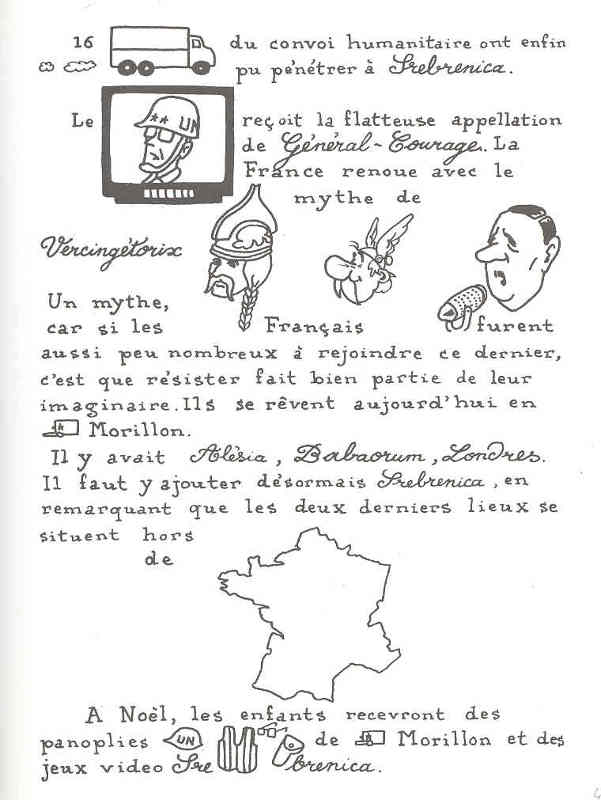 16 du convoi humanitaire ont enfin
pu pénétrer à Srebrenica.
UN
Le reçoit la flatteuse appellation
de Général-Courage. La
France renoue avec le
mythe de
Vercingétorix
Un mythe,
car si les Français furent
aussi peu nombreux à rejoindre ce dernier,
c'est que résister fait bien partie de leur
imaginaire. Ils se rêvent aujourd'hui en
Morillon.
Il y avait Alésia, Babaorum, Londres.
Il faut y ajouter désormais Srebrenica, en
remarquant que les deux derniers lieux se
situent hors
de
A Noël, les enfants recevront des
panoplies UN de Morillon et des
jeux video Srebrenica.